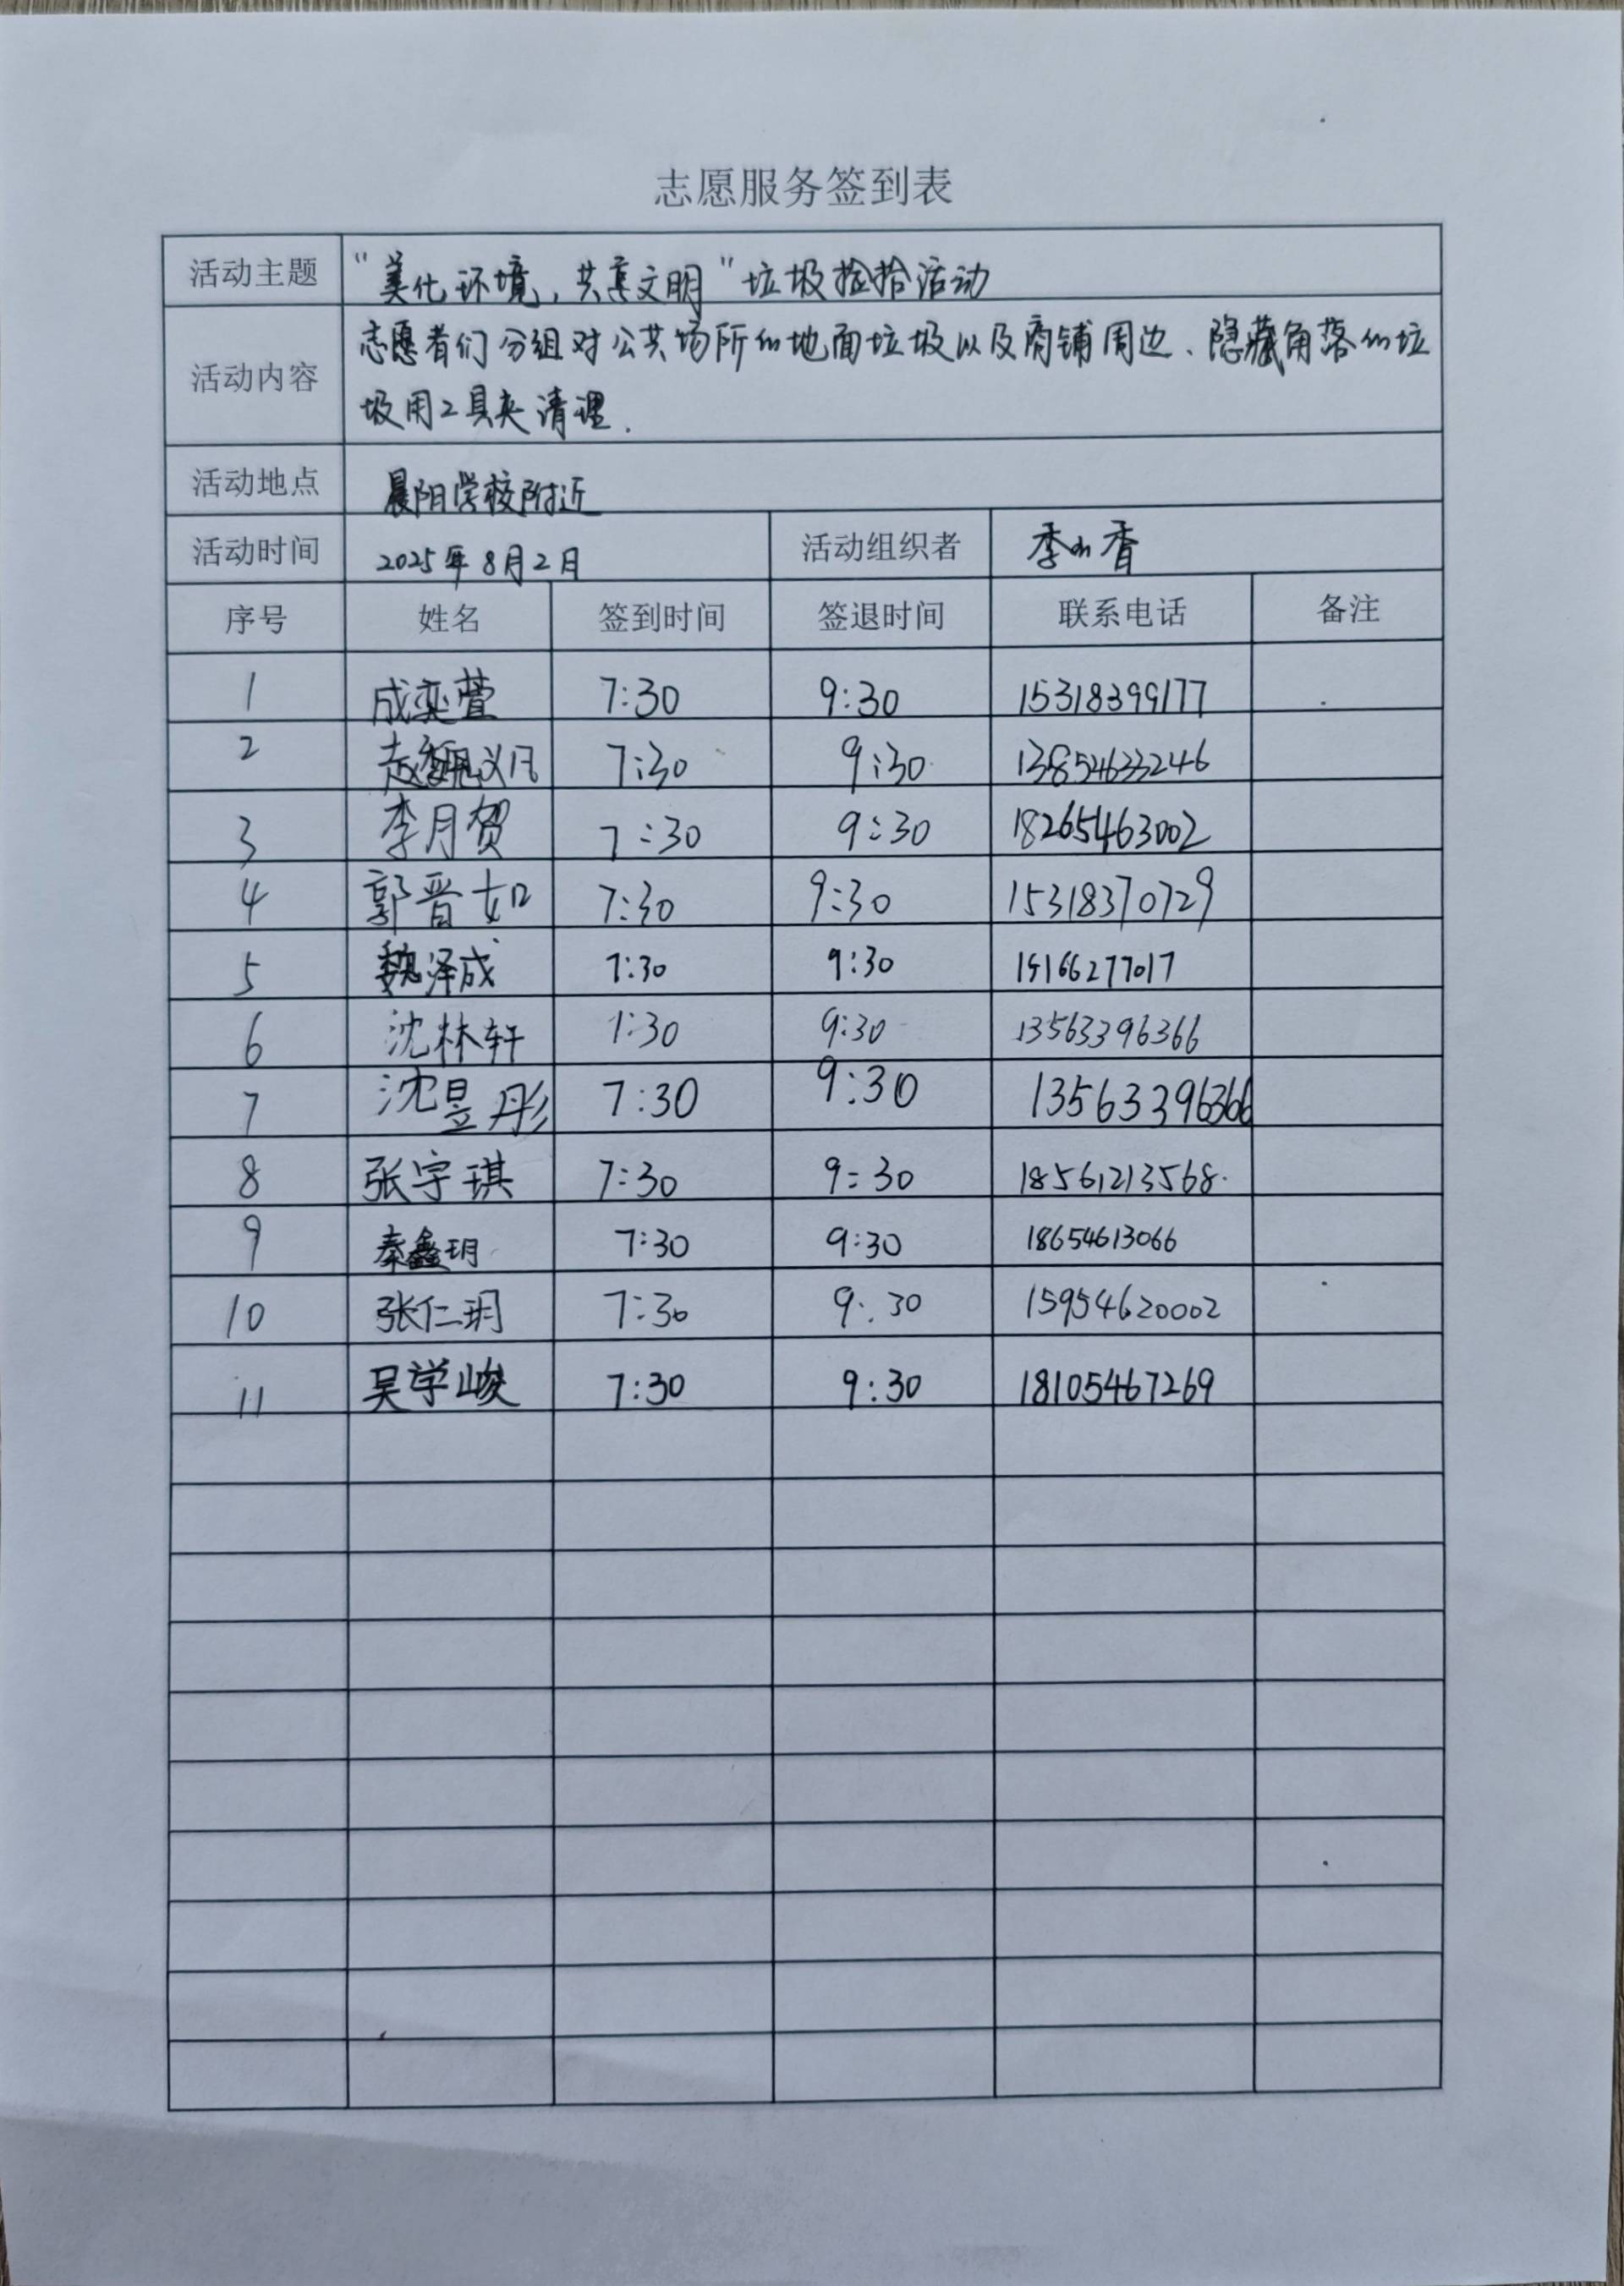 志愿服务签到表
活动主题 “美化环境，共享文明”垃圾捡拾活动
活动内容 志愿者们分组对公共场所的地面垃圾以及商铺周边、隐藏角落的垃
圾用工具夹清理.
活动地点 晨阳学校附近
活动时间 2025年8月2日 活动组织者 李小香
序号 姓名 签到时间 签退时间 联系电话 备注
1 成奕萱 7:30 9:30 15318399177
2 赵魏义凡 7:30 9:30 13854633246
3 李月贺 7:30 9:30 18265463002
4 郭晋如 7:30 9:30 15318370729
5 魏泽成 7:30 9:30 15166277017
6 沈林轩 7:30 9:30 13563396366
7 沈昱彤 7:30 9:30 13563396366
8 张宇琪 7:30 9:30 18561213568
9 秦鑫玥 7:30 9:30 18654613066
10 张仁玥 7:30 9:30 15954620002
11 吴学峻 7:30 9:30 18105467269